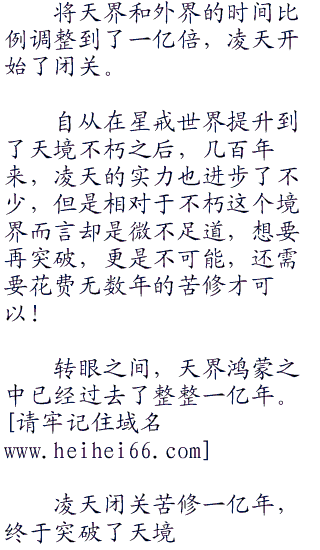 将天界和外界的时间比
例调整到了一亿倍，凌天开
始了闭关。
自从在星戒世界提升到
了天境不朽之后，几百年
来，凌天的实力也进步了不
少，但是相对于不朽这个境
界而言却是微不足道，想要
再突破，更是不可能，还需
要花费无数年的苦修才可
以！
转眼之间，天界鸿蒙之
中已经过去了整整一亿年。
[请牢记住域名
www.heihei66.com]
凌天闭关苦修一亿年，
终于突破了天境